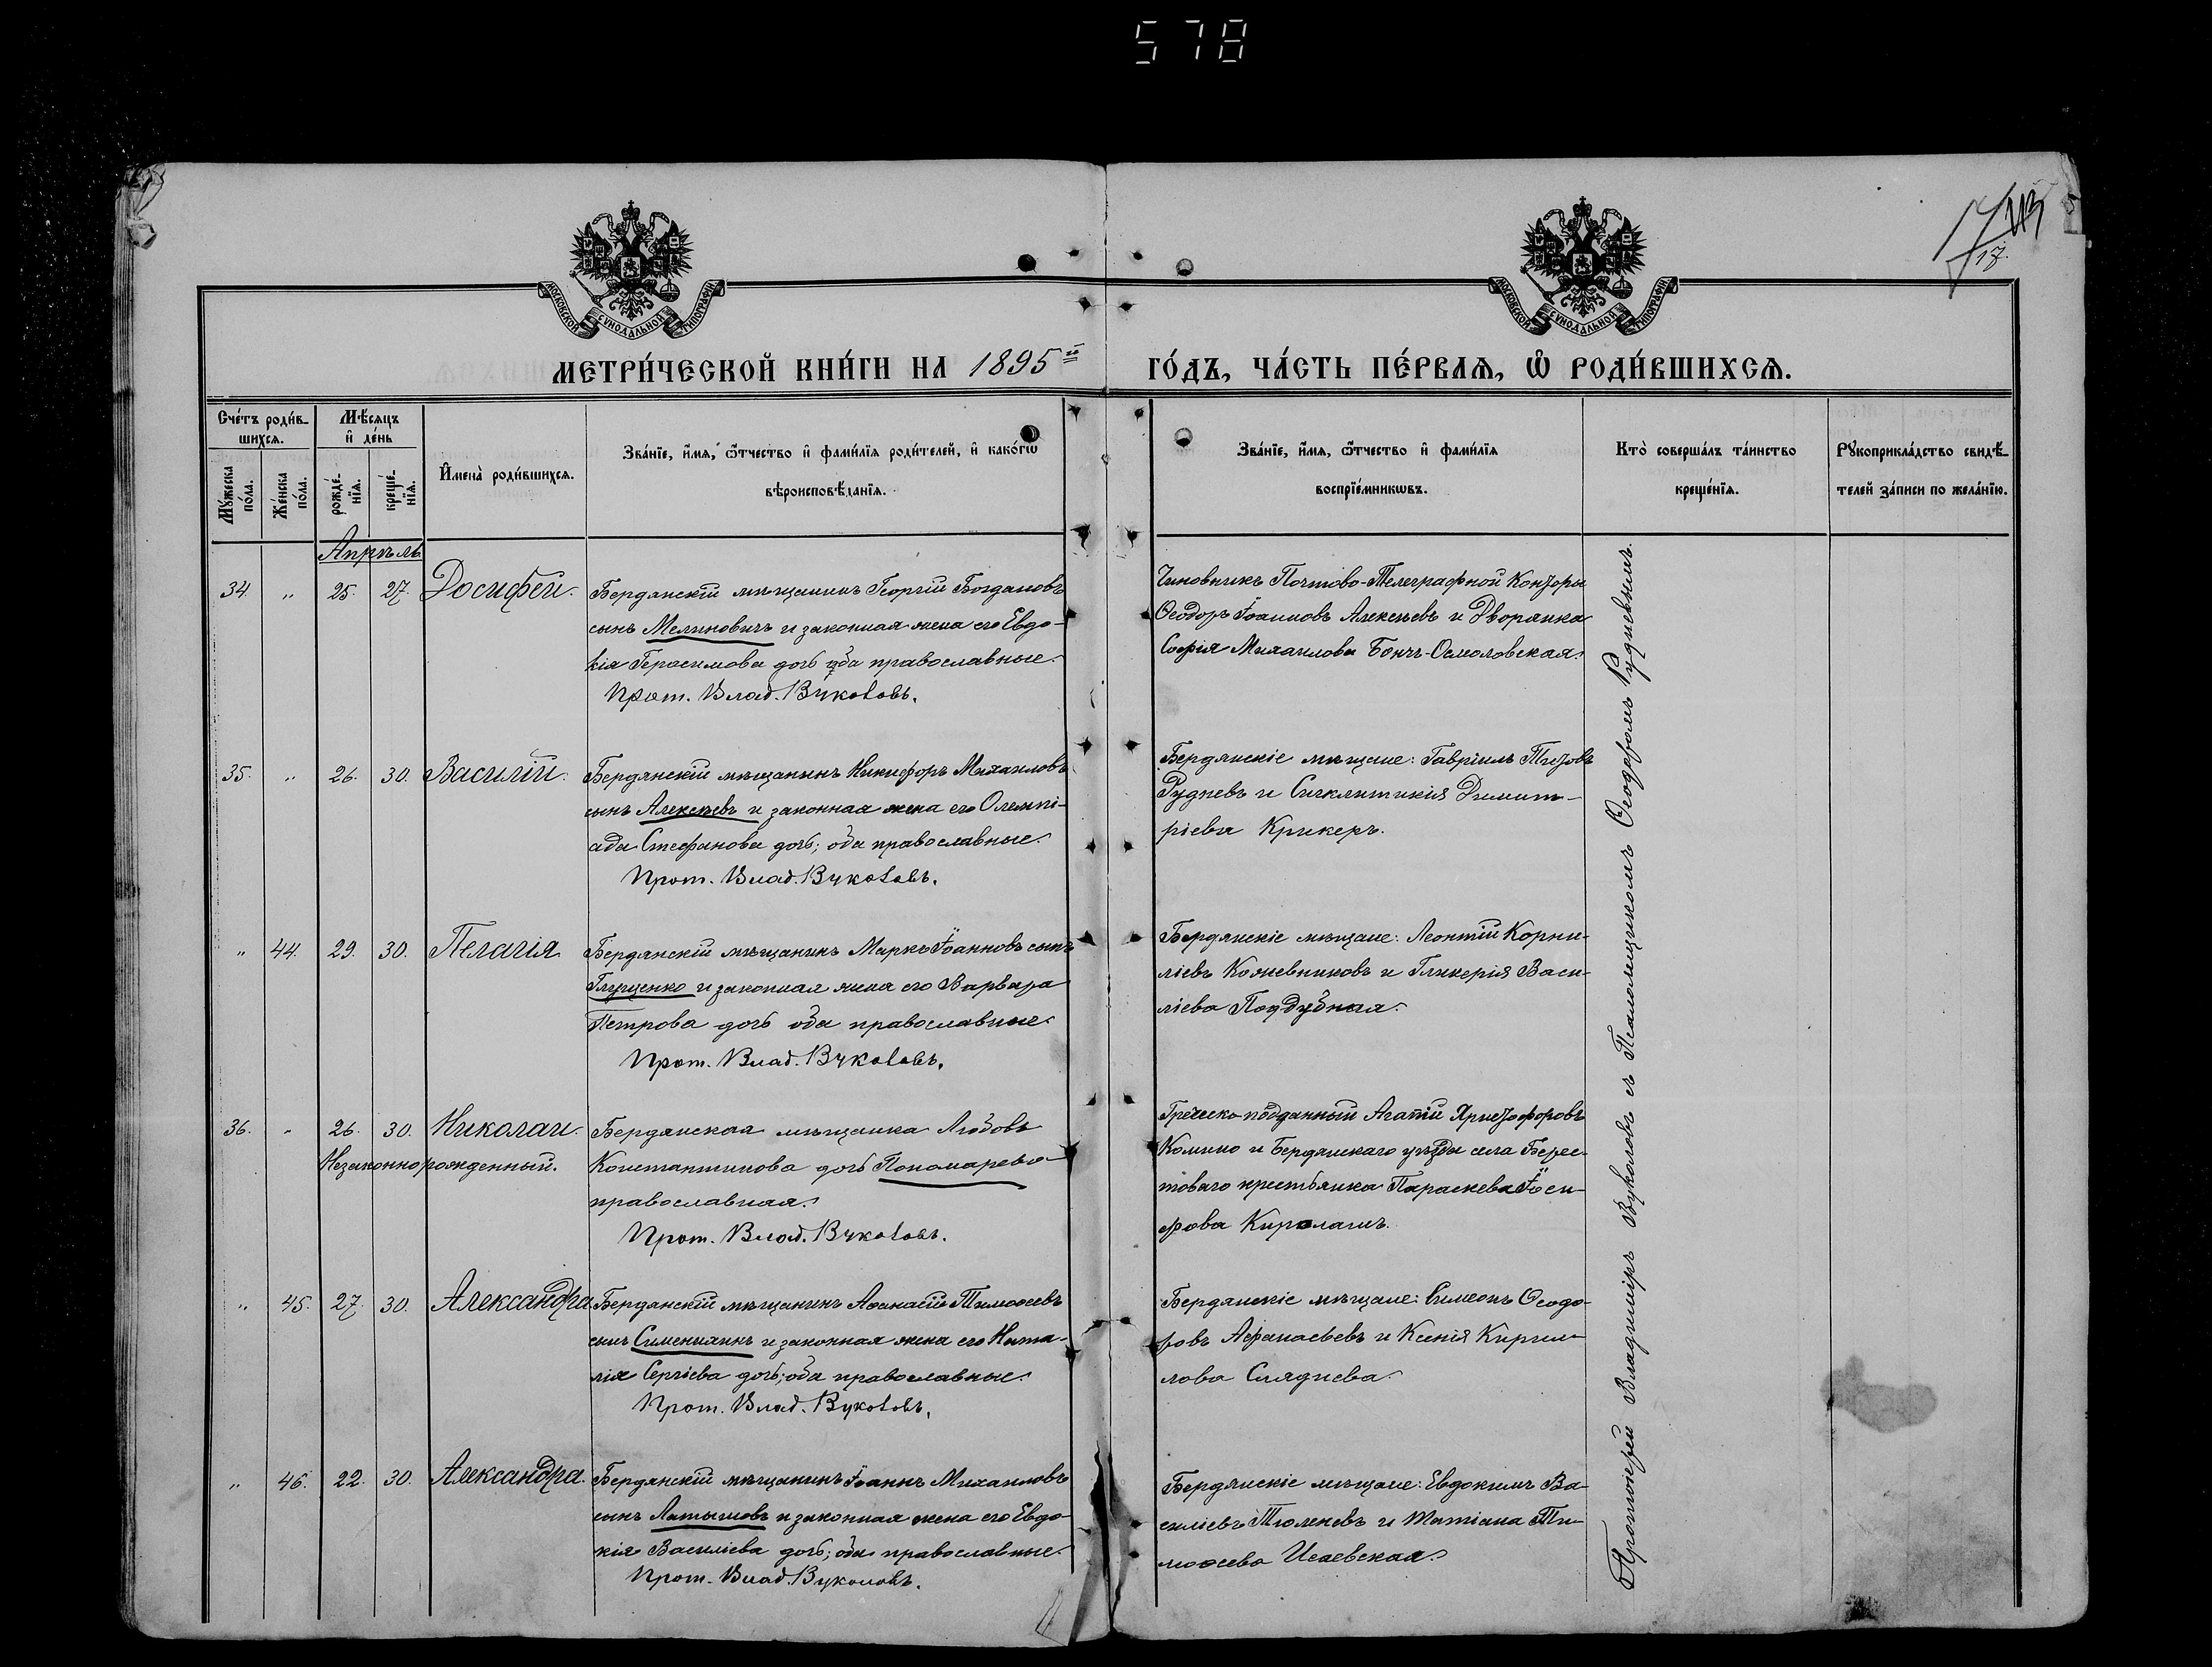 578
МОСКОВСКОЙ СѴНОДАЛЬНОЙ ТИПОГРАФІИ
МОСКОВСКОЙ СѴНОДАЛЬНОЙ ТИПОГРАФІИ
17.
МЕТРИ́ЧЕСКОЙ КНИ́ГИ НА 1895й ГО́ДЪ, ЧА́СТЬ ПЕ́РВАѦ, Ѡ҆ РОДИ́ВШИХСѦ.
Сче́тъ роди́в-
шихсѧ.
Мꙋ́жеска по́ла.
Же́нска по́ла.
Мѣ́сяцъ
и҆ де́нь
рожде́-
нїѧ.
креще́-
нїѧ.
И҆мена̀ роди́вшихсѧ.
Зва́нїе, и҆́мѧ, ѻ҆́тчество и҆ фами́лїѧ роди́телей, и҆ како́гѡ
вѣроисповѣ́данїѧ.
Зва́нїе, и҆́мѧ, ѻ҆́тчество и҆ фами́лїѧ
воспрїе́мникѡвъ.
Кто̀ соверша́лъ та́инство
креще́нїѧ.
Рꙋкоприкла́дство свидѣ́-
телей за́писи по жела́нїю.
Апрѣль
34. „ 25. 27. Досифей.
Бердянскій мѣщанинъ Георгій Богдановъ
сынъ Мелиновичъ и законная жена его Евдо-
кія Герасимова дочь оба православные.
Прот. Влад. Вуколовъ.
Чиновникъ Почтово-Телеграфной Конторы
Ѳеодоръ Іоанновъ Алексѣевъ и Дворянка
Софія Михаилова Бончъ-Осмоловская.
35. „ 26. 30. Василій.
Бердянскій мѣщанинъ Никифоръ Михаиловъ
сынъ Алексѣевъ и законная жена его Олемпі-
ада Стефанова дочь; оба православные.
Прот. Влад. Вуколовъ.
Бердянскіе мѣщане: Гавріилъ Титовъ
Рудневъ и Сигклитикія Димит-
ріева Крикеръ.
„ 44. 29. 30. Пелагія
Бердянскій мѣщанинъ Маркъ Іоанновъ сынъ
Глущенко и законная жена его Варвара
Петрова дочь оба православные.
Прот. Влад. Вуколовъ.
Бердянскіе мѣщане: Леонтій Корни-
ліевъ Кожевниковъ и Гликерія Васи-
ліева Поддубная.
36. „ 26. 30. Николай.
Незаконнорожденный.
Бердянская мѣщанка Любовь
Константинова дочь Пономарева
православная.
Прот. Влад. Вуколовъ.
Греческо-подданный Агапій Христофоровъ
Комино и Бердянскаго уѣзда села Берес-
товаго крестьянка Параскева Іоси-
фова
„ 45. 27. 30. Александра
Бердянскій мѣщанинъ Аѳанасій Тимоѳеевъ
сынъ Сименихинъ и законная жена его Ната-
лія Сергіева дочь; оба православные.
Прот. Влад. Вуколовъ.
Бердянскіе мѣщане: Симеонъ Ѳеодо-
ровъ Афанасьевъ и Ксенія Кирил-
лова Сляднева.
„ 46. 22. 30. Александра.
Бердянскій мѣщанинъ Іоаннъ Михаиловъ
сынъ Латышовъ и законная жена его Евдо-
кія Василіева дочь; оба православные.
Прот. Влад. Вуколовъ.
Бердянскіе мѣщане: Евдокимъ Ва-
силіевъ Тюленевъ и Татіана Ти-
моѳеева Исаевская.
Протоіерей Владиміръ Вуколовъ съ Псаломщикомъ Ѳеодоромъ Рудневымъ.